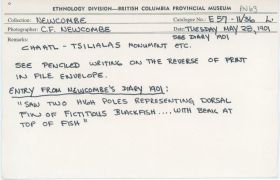 ETHNOLOGY DIVISION—BRITISH COLUMBIA PROVINCIAL MUSEUM PN63
Collection: NEWCOMBE Catalogue No.: E57-11/36 L
Photographer: C.F. NEWCOMBE Date: TUESDAY MAY 28, 1901
Remarks: SEE DIARY 1901
CHAATL - TSILIALAS MONUMENT ETC.
SEE PENCILED WRITING ON THE REVERSE OF PRINT
IN FILE ENVELOPE.
ENTRY FROM NEWCOMBE'S DIARY 1901:
"SAW TWO HIGH POLES REPRESENTING DORSAL
FIN OF FICTITIOUS BLACKFISH....WITH BEAK AT
TOP OF FISH"